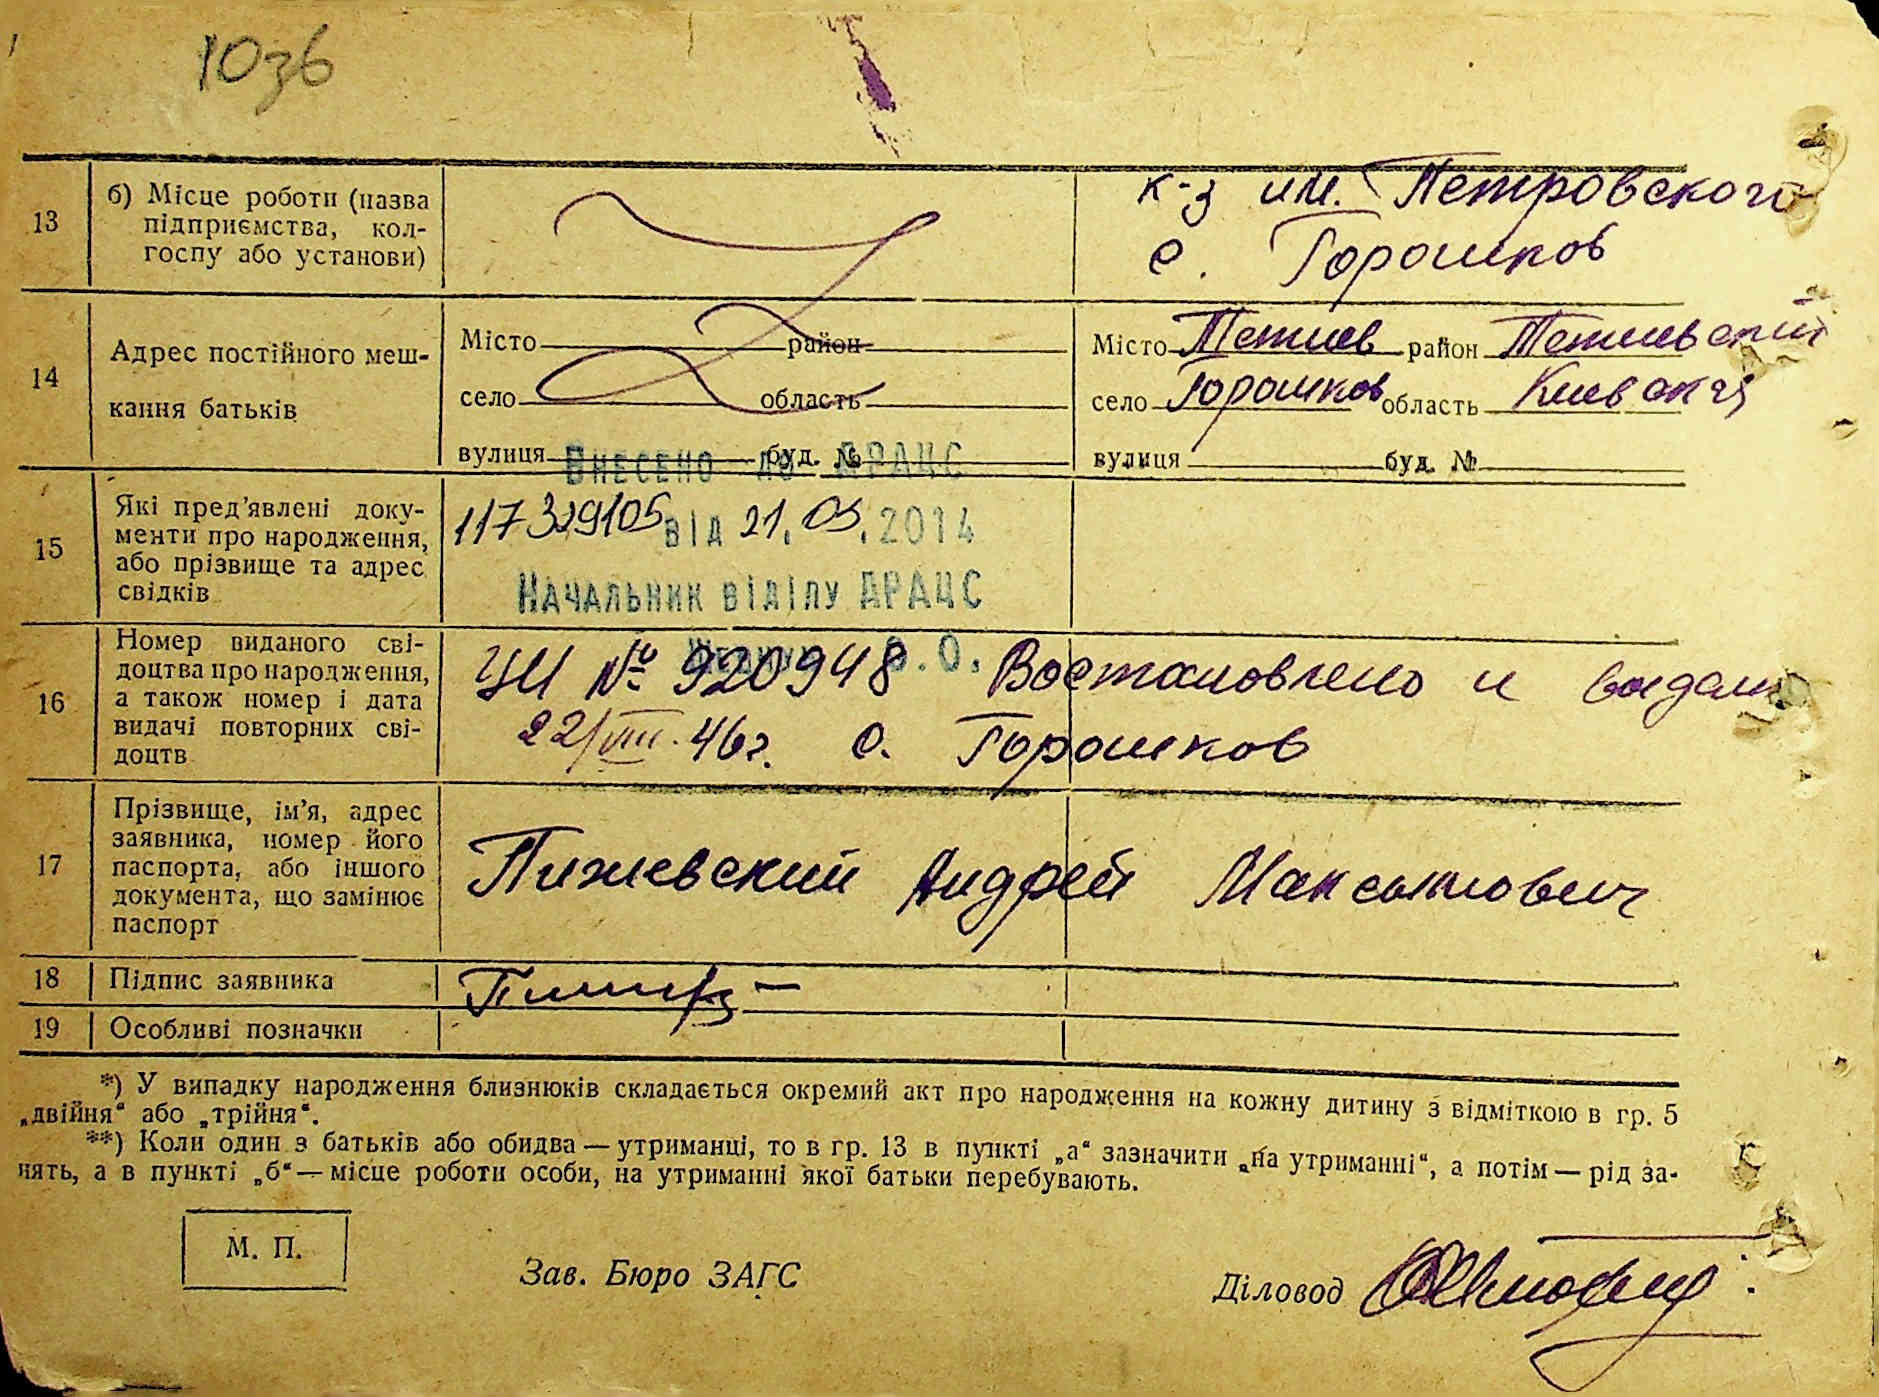 1036
13
б) Місце роботи (назва
підприємства, кол-
госпу або установи)
к-з им. Петровского
с. Горошков
14
Адрес постійного меш-
кання батьків
Місто район
село область
вулиця буд. №
Місто Тетиев район Тетиевский
село Горошков область Киевская
вулиця буд. №
15
Які пред'явлені доку-
менти про народження,
або прізвище та адрес
свідків
Внесено до ДРАЦС
117329105 від 21.05.2014
Начальник відділу ДРАЦС
О.О.
16
Номер виданого сві-
доцтва про народження,
а також номер і дата
видачі повторних сві-
доцтв
ЦЧ № 920948 Востановлено и выдан
22/VIII. 46 г. с. Горошков
17
Прізвище, ім'я, адрес
заявника, номер його
паспорта, або іншого
документа, що замінює
паспорт
Пижевский Андрей Максимович
18
Підпис заявника
19
Особливі позначки
*) У випадку народження близнюків складається окремий акт про народження на кожну дитину з відміткою в гр. 5
„двійня“ або „трійня“.
**) Коли один з батьків або обидва — утриманці, то в гр. 13 в пункті „а“ зазначити „на утриманні“, а потім — рід за-
нять, а в пункті „б“ — місце роботи особи, на утриманні якої батьки перебувають.
М. П.
Зав. Бюро ЗАГС
Діловод